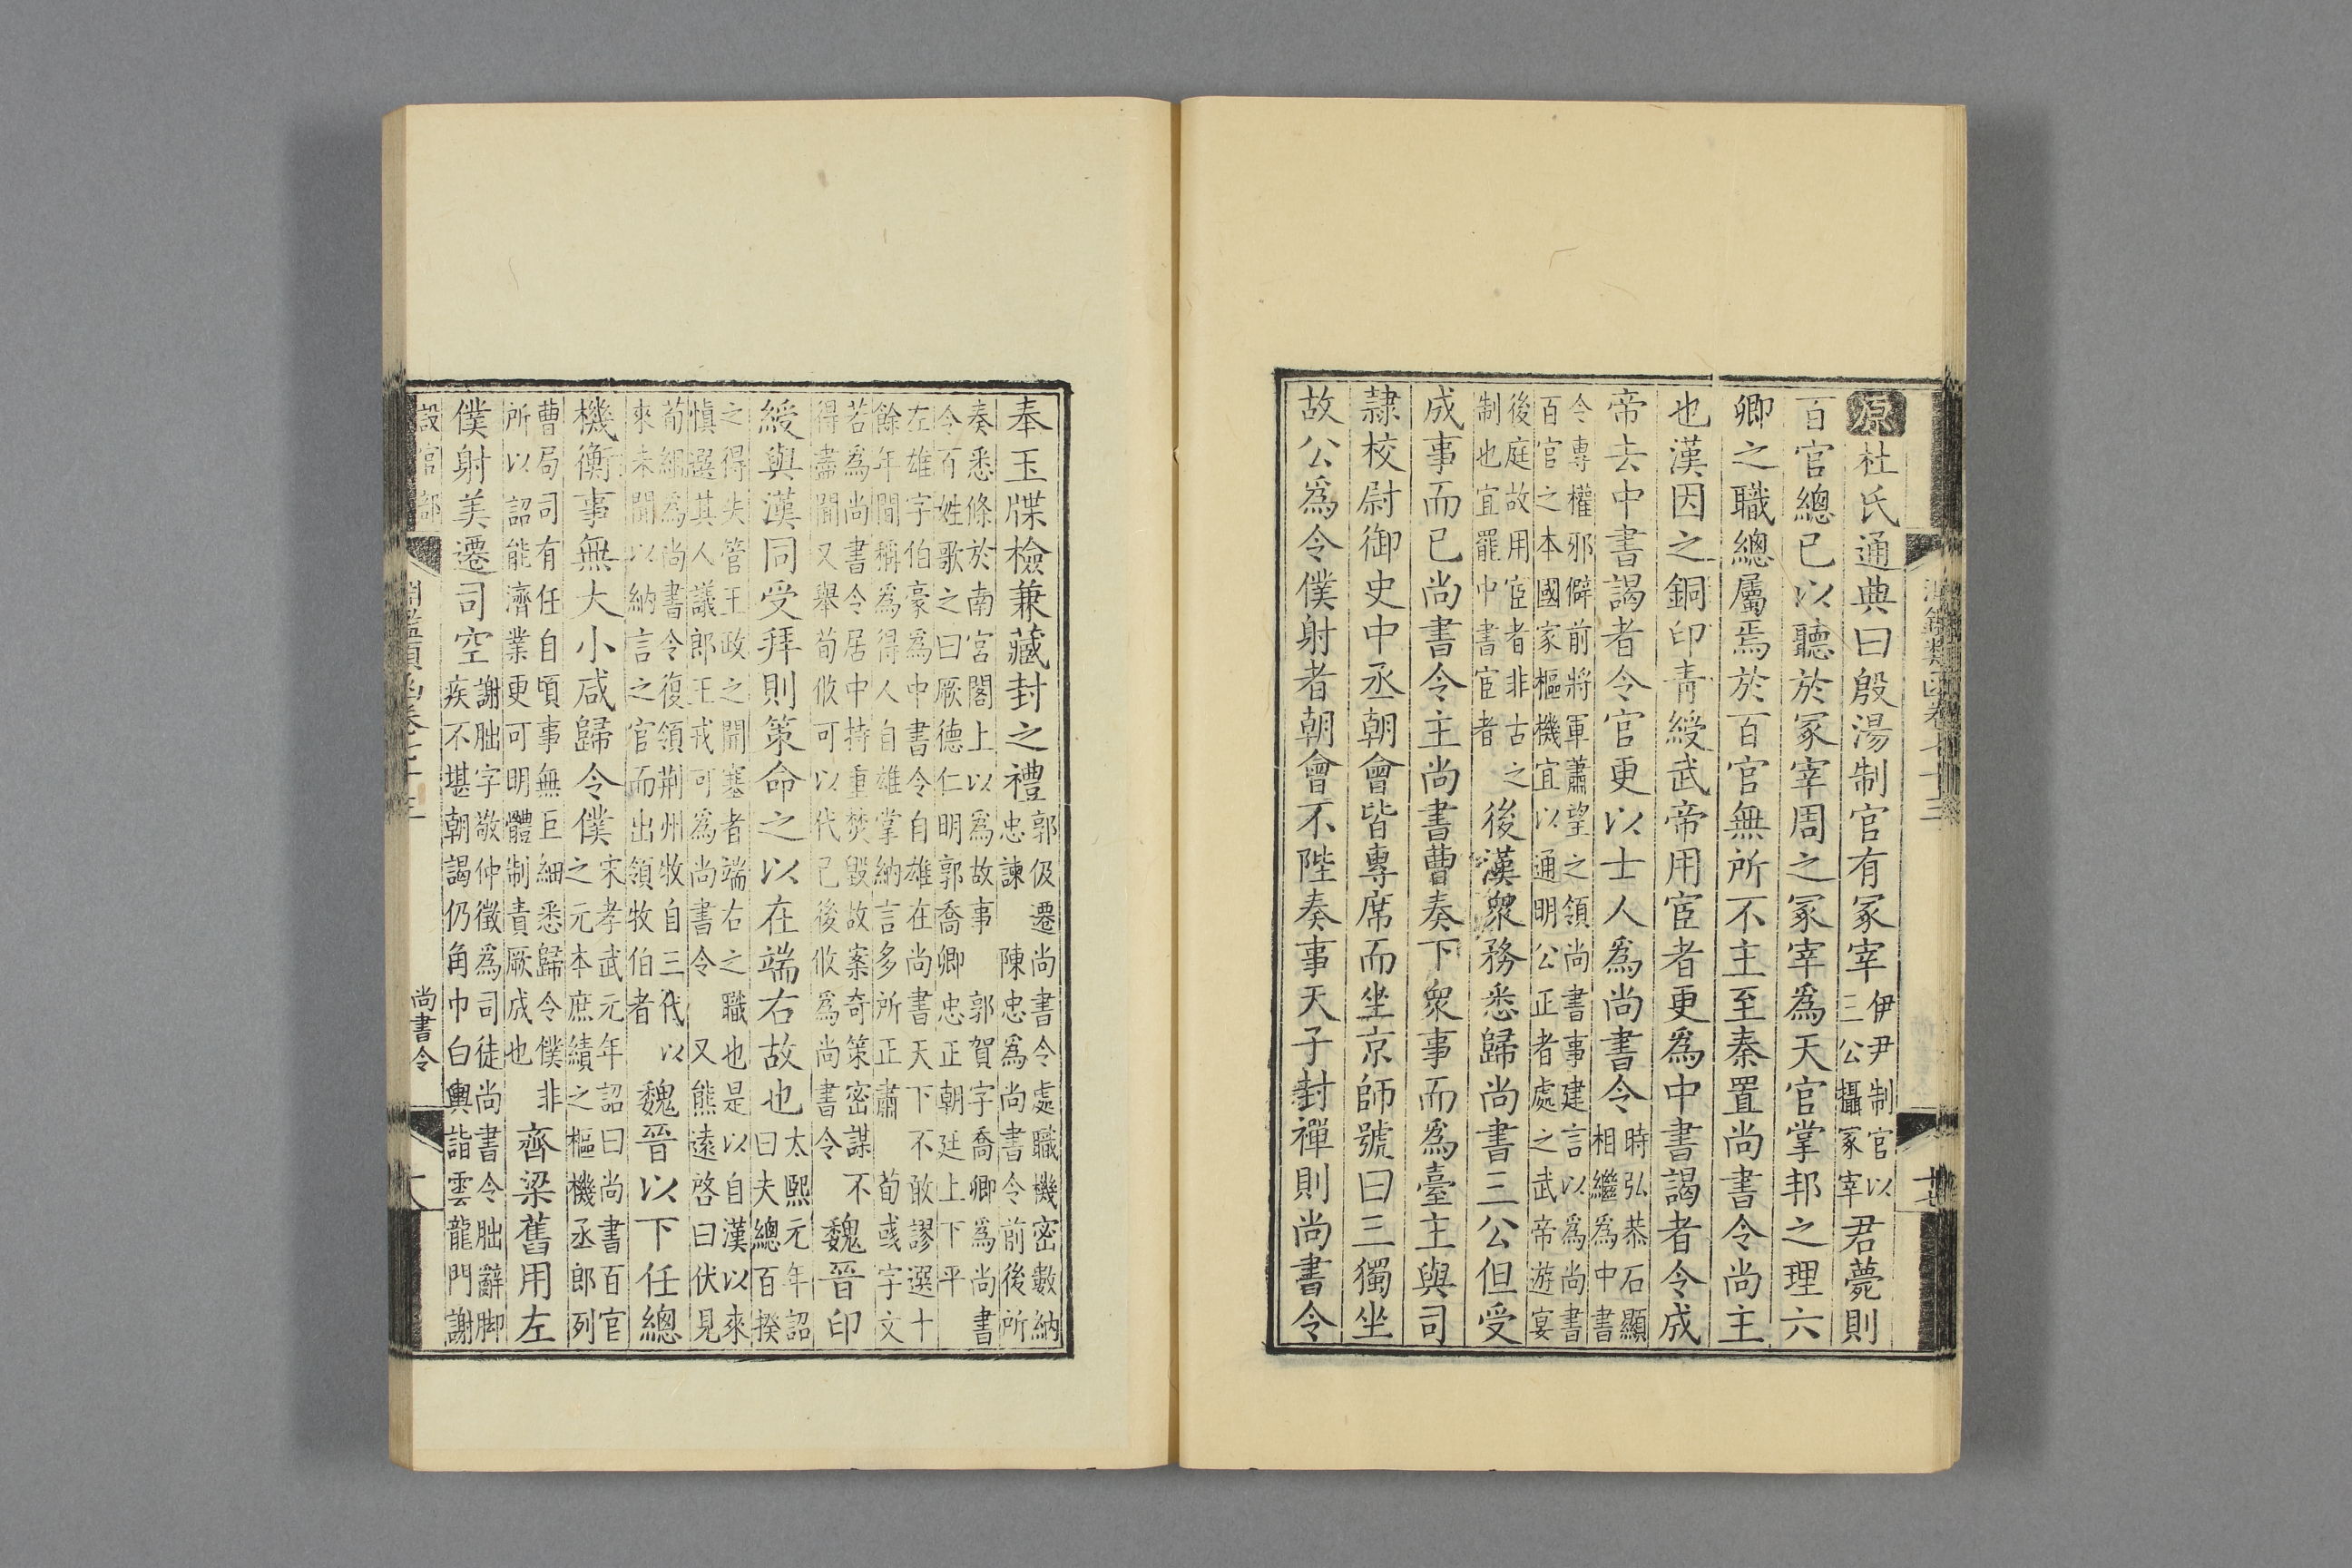 淵鑑類函卷七十三
十七
原杜氏通典曰殷湯制官有冢宰伊尹制官以
三公攝冢宰君薨則
百官總已以聽於冢宰周之冢宰爲天官掌邦之理六
卿之職總屬焉於百官無所不主至秦置尚書令尚主
也漢因之銅印青綬武帝用宦者更爲中書謁者令成
帝去中書謁者令官更以士人爲尚書令時弘恭石顯
相繼爲中書
令專權邪僻前將軍蕭望之領尚書事建言以爲尚書
百官之本國家樞機宜以通明公正者處之武帝遊宴
後庭故用宦者非古之
制也宜罷中書宦者後漢衆務悉歸尚書三公但受
成事而已尚書令主尚書曹奏下衆事而爲臺主與司
隷校尉御史中丞朝會皆專席而坐京師號曰三獨坐
故公爲令僕射者朝會不陛奏事天子封禪則尚書令
奉玉牒檢兼藏封之禮郭伋遷尚書令處職機密數納
忠諫 陳忠爲尚書令前後所
奏悉條於南宮閣上以爲故事 郭賀字喬卿爲尚書
令百姓歌之曰厥德仁明郭喬卿忠正朝廷上下平
左雄字伯豪爲中書令自雄在尚書天下不敢謬選十
餘年間稱爲得人自雄掌納言多所正肅 荀彧字文
若爲尚書令居中持重焚毀故案奇策密謀不
得盡聞又舉荀攸可以代已後攸爲尚書令魏晉印
綬與漢同受拜則策命之以在端右故也太熙元年詔
曰夫總百揆
之得失管王政之開塞者端右之職也是以自漢以來
愼選其人議郎王戎可爲尚書令 又熊遠啓曰伏見
荀綱爲尚書令復領荆州牧自三代以
來未聞以納言之官而出領牧伯者魏晉以下任總
機衡事無大小咸歸令僕宋孝武元年詔曰尚書百官
之元本庶績之樞機丞郎列
曹局司有任自頃事無巨細悉歸令僕非
所以詔能濟業更可明體制責厥成也齊梁舊用左
僕射美遷司空謝朏字敬仲徵爲司徒尚書令朏辭脚
疾不堪朝謁仍角巾白輿詣雲龍門謝
設官部
淵鑑類函卷七十三
尚書令